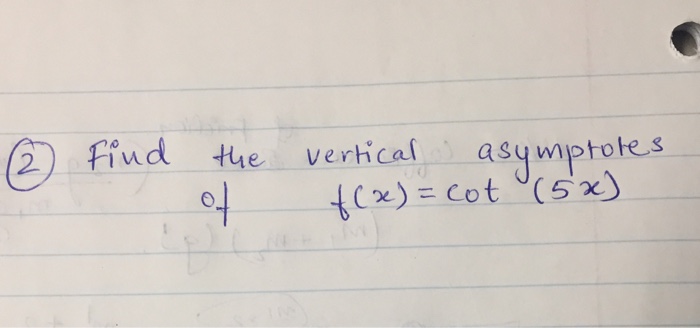 ② Find the vertical asymptotes
of f(x) = cot (5x)